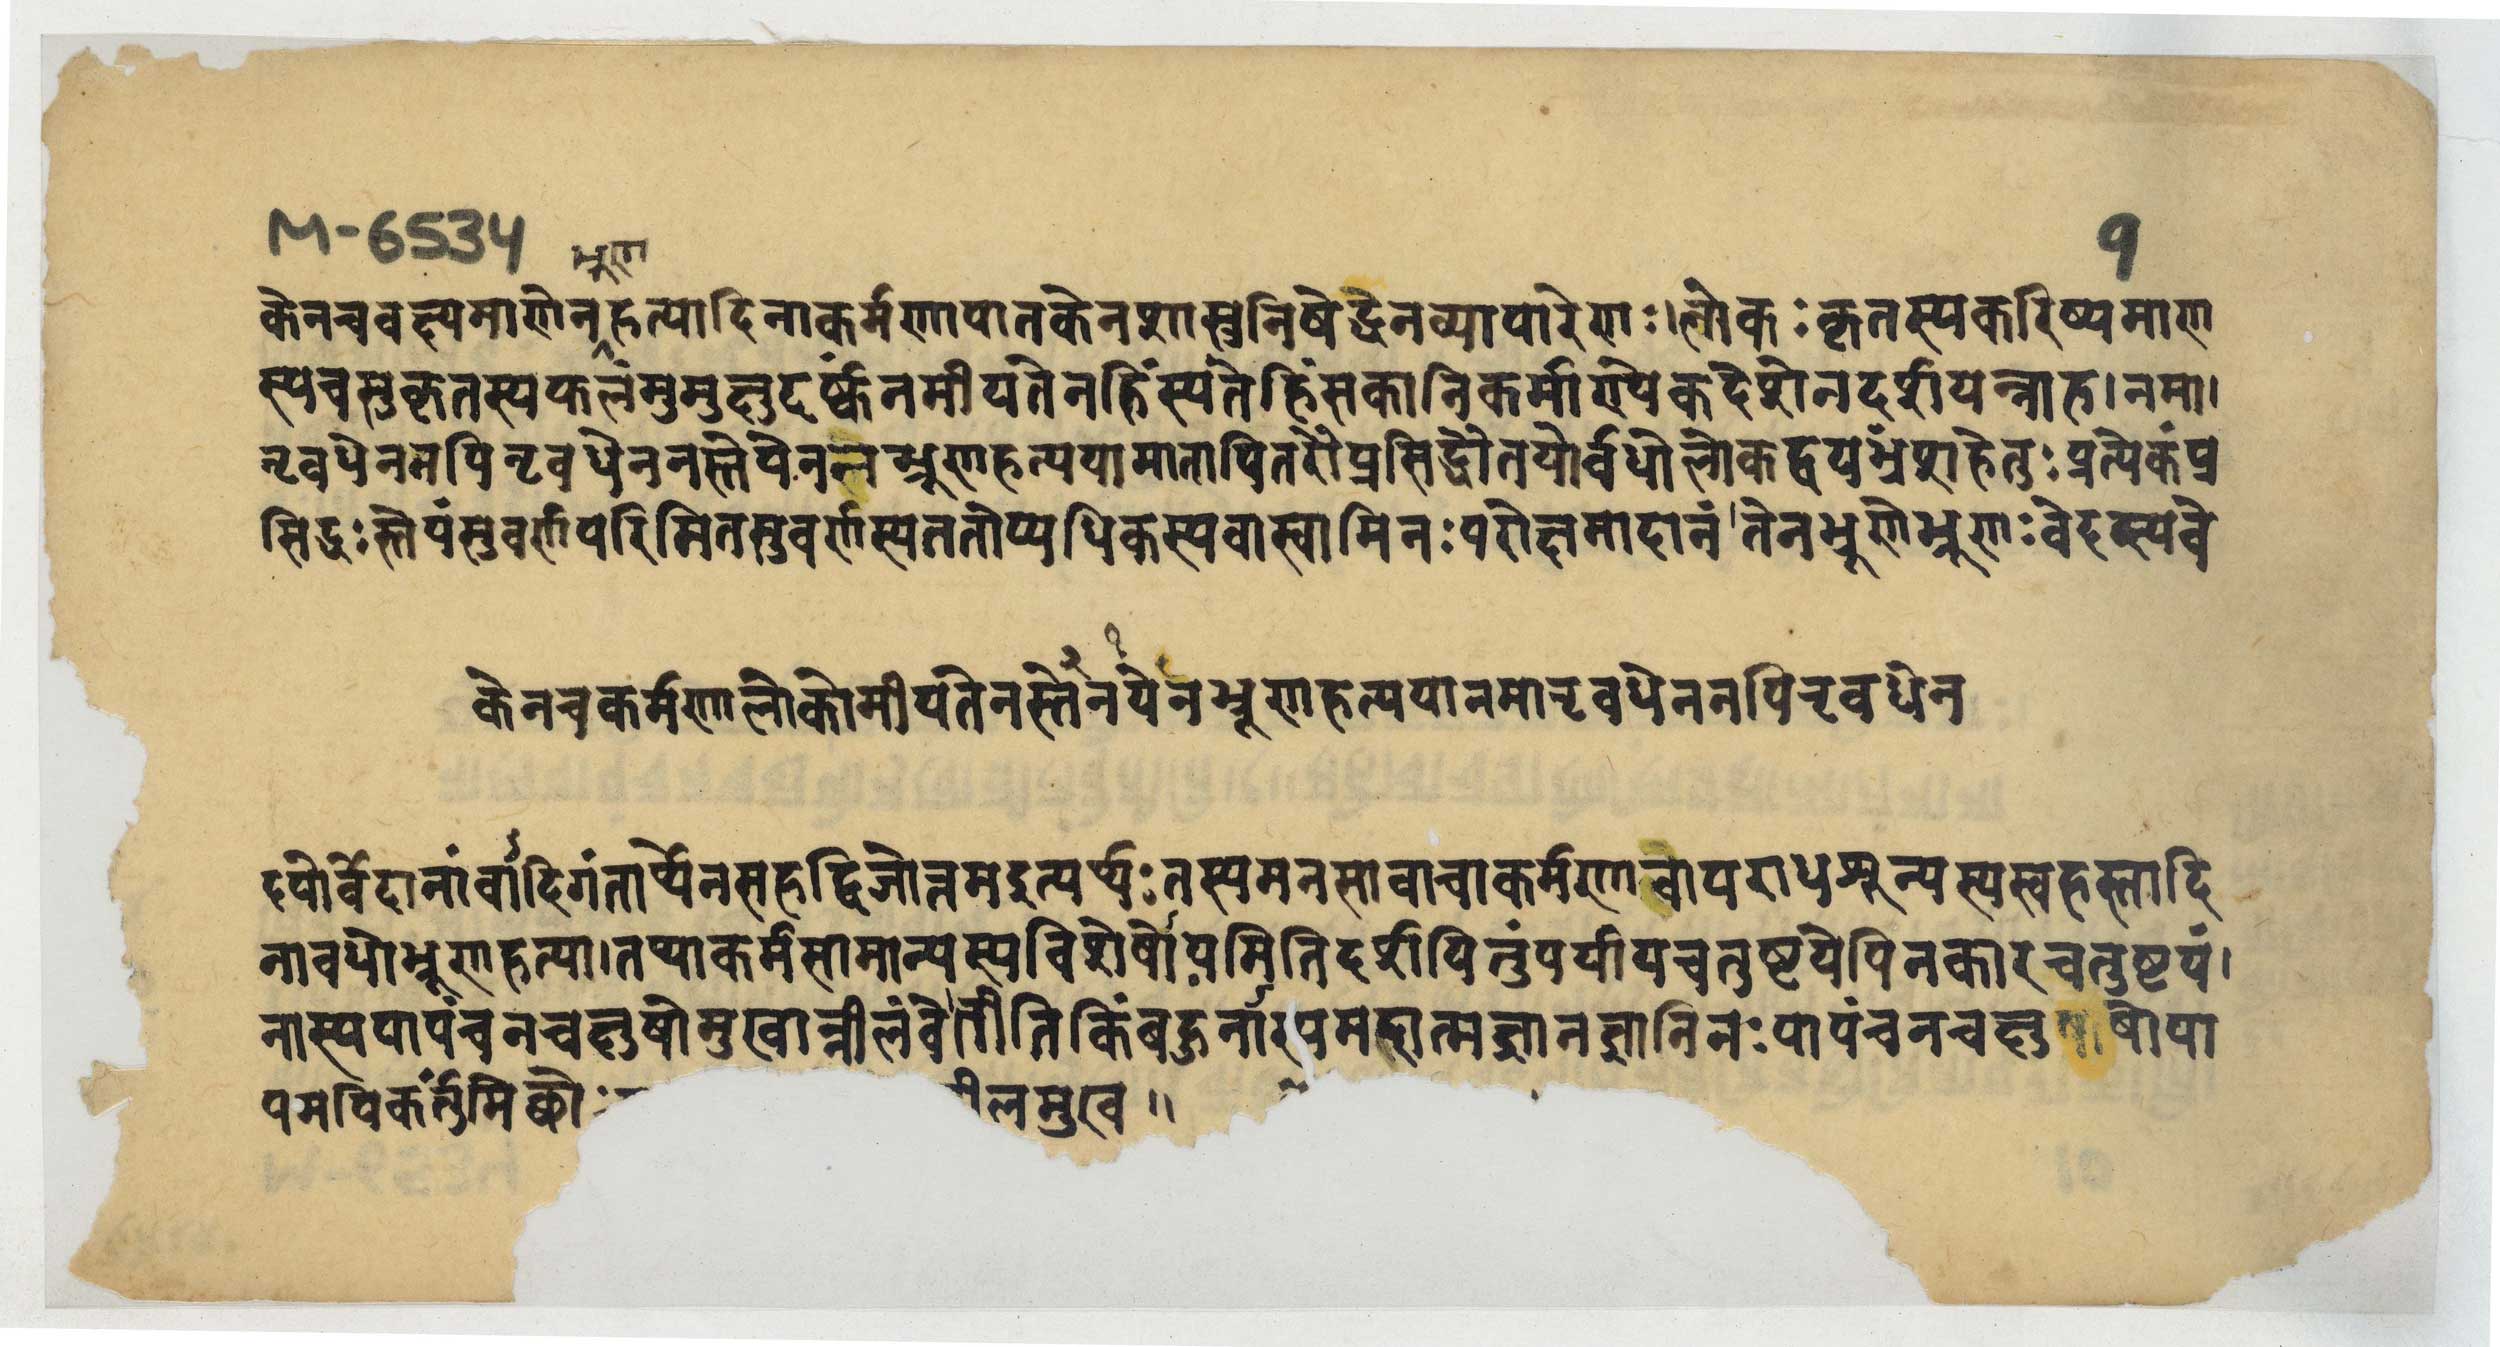 M-6534
भ्रूण
१
केनचवक्ष्यमाणेनहत्यादिनाकर्मणापातकेनशास्त्रनिषेद्धेनव्यापारेणः।लोकः कृतस्यकरिष्यमाण
स्यचसुकृतस्यफलंमुमुक्षुदर्ष्कनमीयतेनहिंस्यतेहिंसकानिकर्माण्येकदेशेनदर्शयन्नाह।नमा।
तृवधेननपितृवधेननस्तेयेनन भ्रूणहत्ययामातापितरौप्रसिद्धौतयोर्वधोलोकद्वयभ्रंशहेतुः प्रत्येकंप्र
सिद्धः स्तेयंसुवर्णपरिमितसुवर्णस्यततोप्यधिकस्यवास्वामिनः परोक्षमादानं।तेनभ्रूणेभ्रूणः वेदस्यवे
२ १
केनचकर्मणालोकोमीयतेनस्तेनयेनभ्रूणहत्ययानमातृवधेननपितृवधेन
दयोर्वेदानांवादिगंतार्थेनसहद्विजोत्तमइत्यर्थः तस्यमनसावाचाकर्मणावापराधशून्यस्यस्वहस्तादि
नावधोभ्रूणहत्या।तथाकर्मसामान्यस्यविशेषोयमितिदर्शयितुंपर्यायचतुष्टयेपिनकारचतुष्टयं।
नास्यपापंचनचक्षुषोमुखान्नीलंवेतीतिकिंबहुनास्यमद्रात्मज्ञानज्ञानिनः पापंचनचक्षु षोपा
पमपिकर्तुमिच्छोः नीलमुखे॥